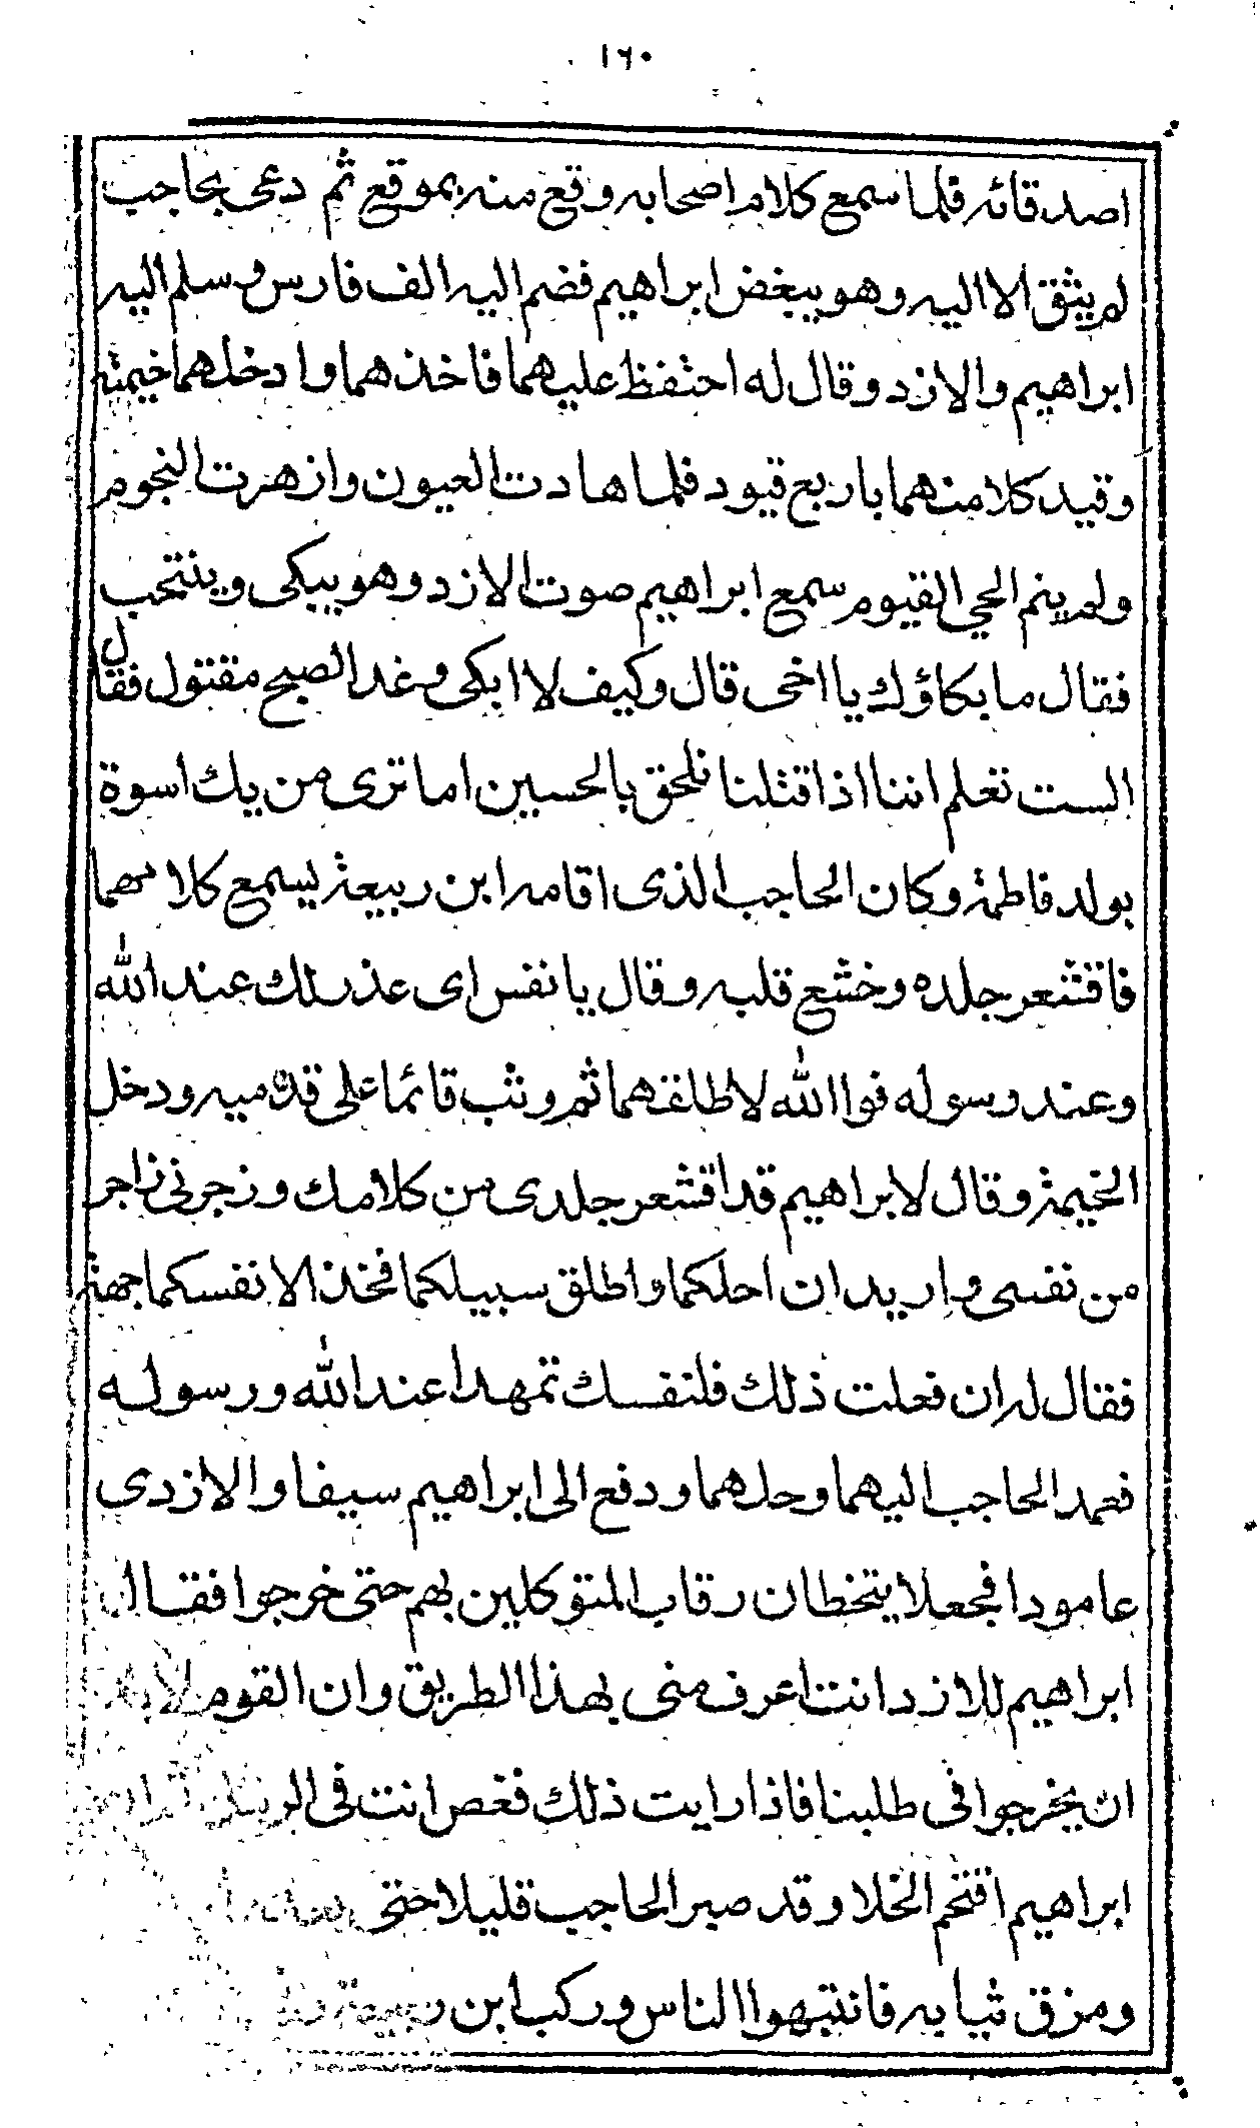 ١٦٠
اصدقائه فلما سمع كلام اصحابه وقع منه بموقع ثم دعى بحاجب
لم يثق الا اليه وهو يبغض ابراهيم فضم اليه الف فارس وسلم اليه
ابراهيم والازد وقال له احتفظ عليهما فاخذهما وادخلهما خيمته
وقيد كلا منهما باربع قيود فلما هادت العيون وازهرت النجوم
ولم ينم الحي القيوم سمع ابراهيم صوت الازد وهو يبكى وينتحب
فقال ما بكاؤك يا اخى قال وكيف لا ابكى وغدا الصبح مقتول فقال
الست تعلم اننا اذا قتلنا نلحق بالحسين اما ترى من يك اسوة
بولد فاطمة وكان الحاجب الذى اقامه ابن ربيعة يسمع كلامهما
فاقشعر جلده وخشع قلبه وقال يا نفس اى عذر لك عند الله
وعند رسوله فوا الله لاطلقهما ثم وثب قائما على قدميه ودخل
الخيمة وقال لابراهيم قد اقشعر جلدى من كلامك وزجرنى زاجر
من نفسى واريد ان احلكما واطلق سبيلكما فخذ الانفسكما جهة
فقال له ان فعلت ذلك فلنفسك تمهدا عند الله ورسوله
فعمد الحاجب اليهما وحلهما ودفع الى ابراهيم سيفا والازدي
عامودا فجعلا يتخطان رقاب المتوكلين بهم حتى خرجوا فقال
ابراهيم للازد انت اعرف منى بهذا الطريق وان القوم لابد
ان يخرجوا فى طلبنا فاذا رايت ذلك فغص انت فى الرمل
ابراهيم اقتحم الخلا وقد صبر الحاجب قليلا حتى
ومزق ثيابه فانتبهوا الناس وركب ابن ربيعة